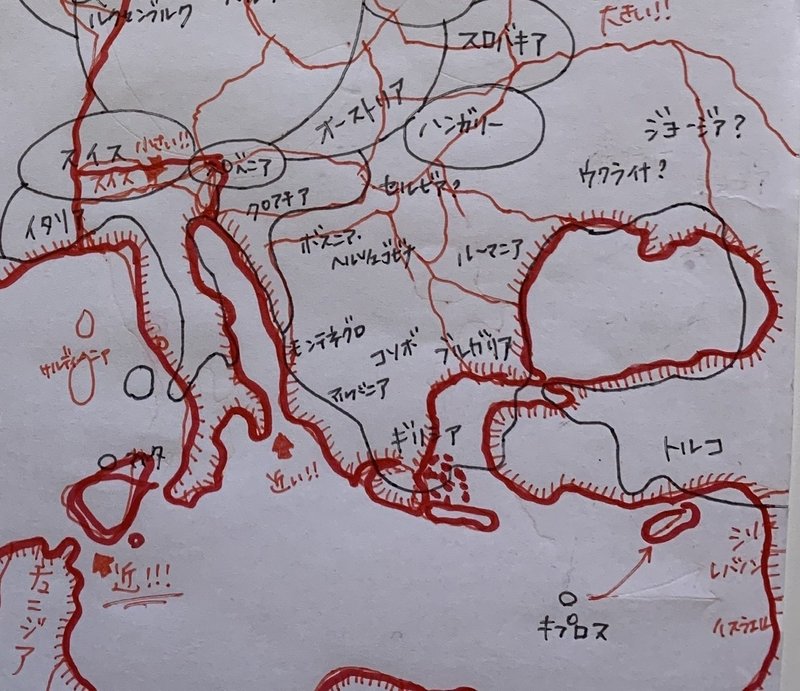 ルクセンブルク
スロバキア
大きい!!
オーストリア
ハンガリー
ジョージア?
スイス
小さい!!
スイス
セルビア?
ウクライナ?
クロアチア
イタリ
ボスニア・
ヘルツェゴビナ
ルーマニア
モンテネグロ
コソボ
ブルガリア
サルディーニャ
ギリシア
トルコ
マルタ
近い!!
シリ
レバノン
近!!!
チュニジア
キプロス
イスラエル